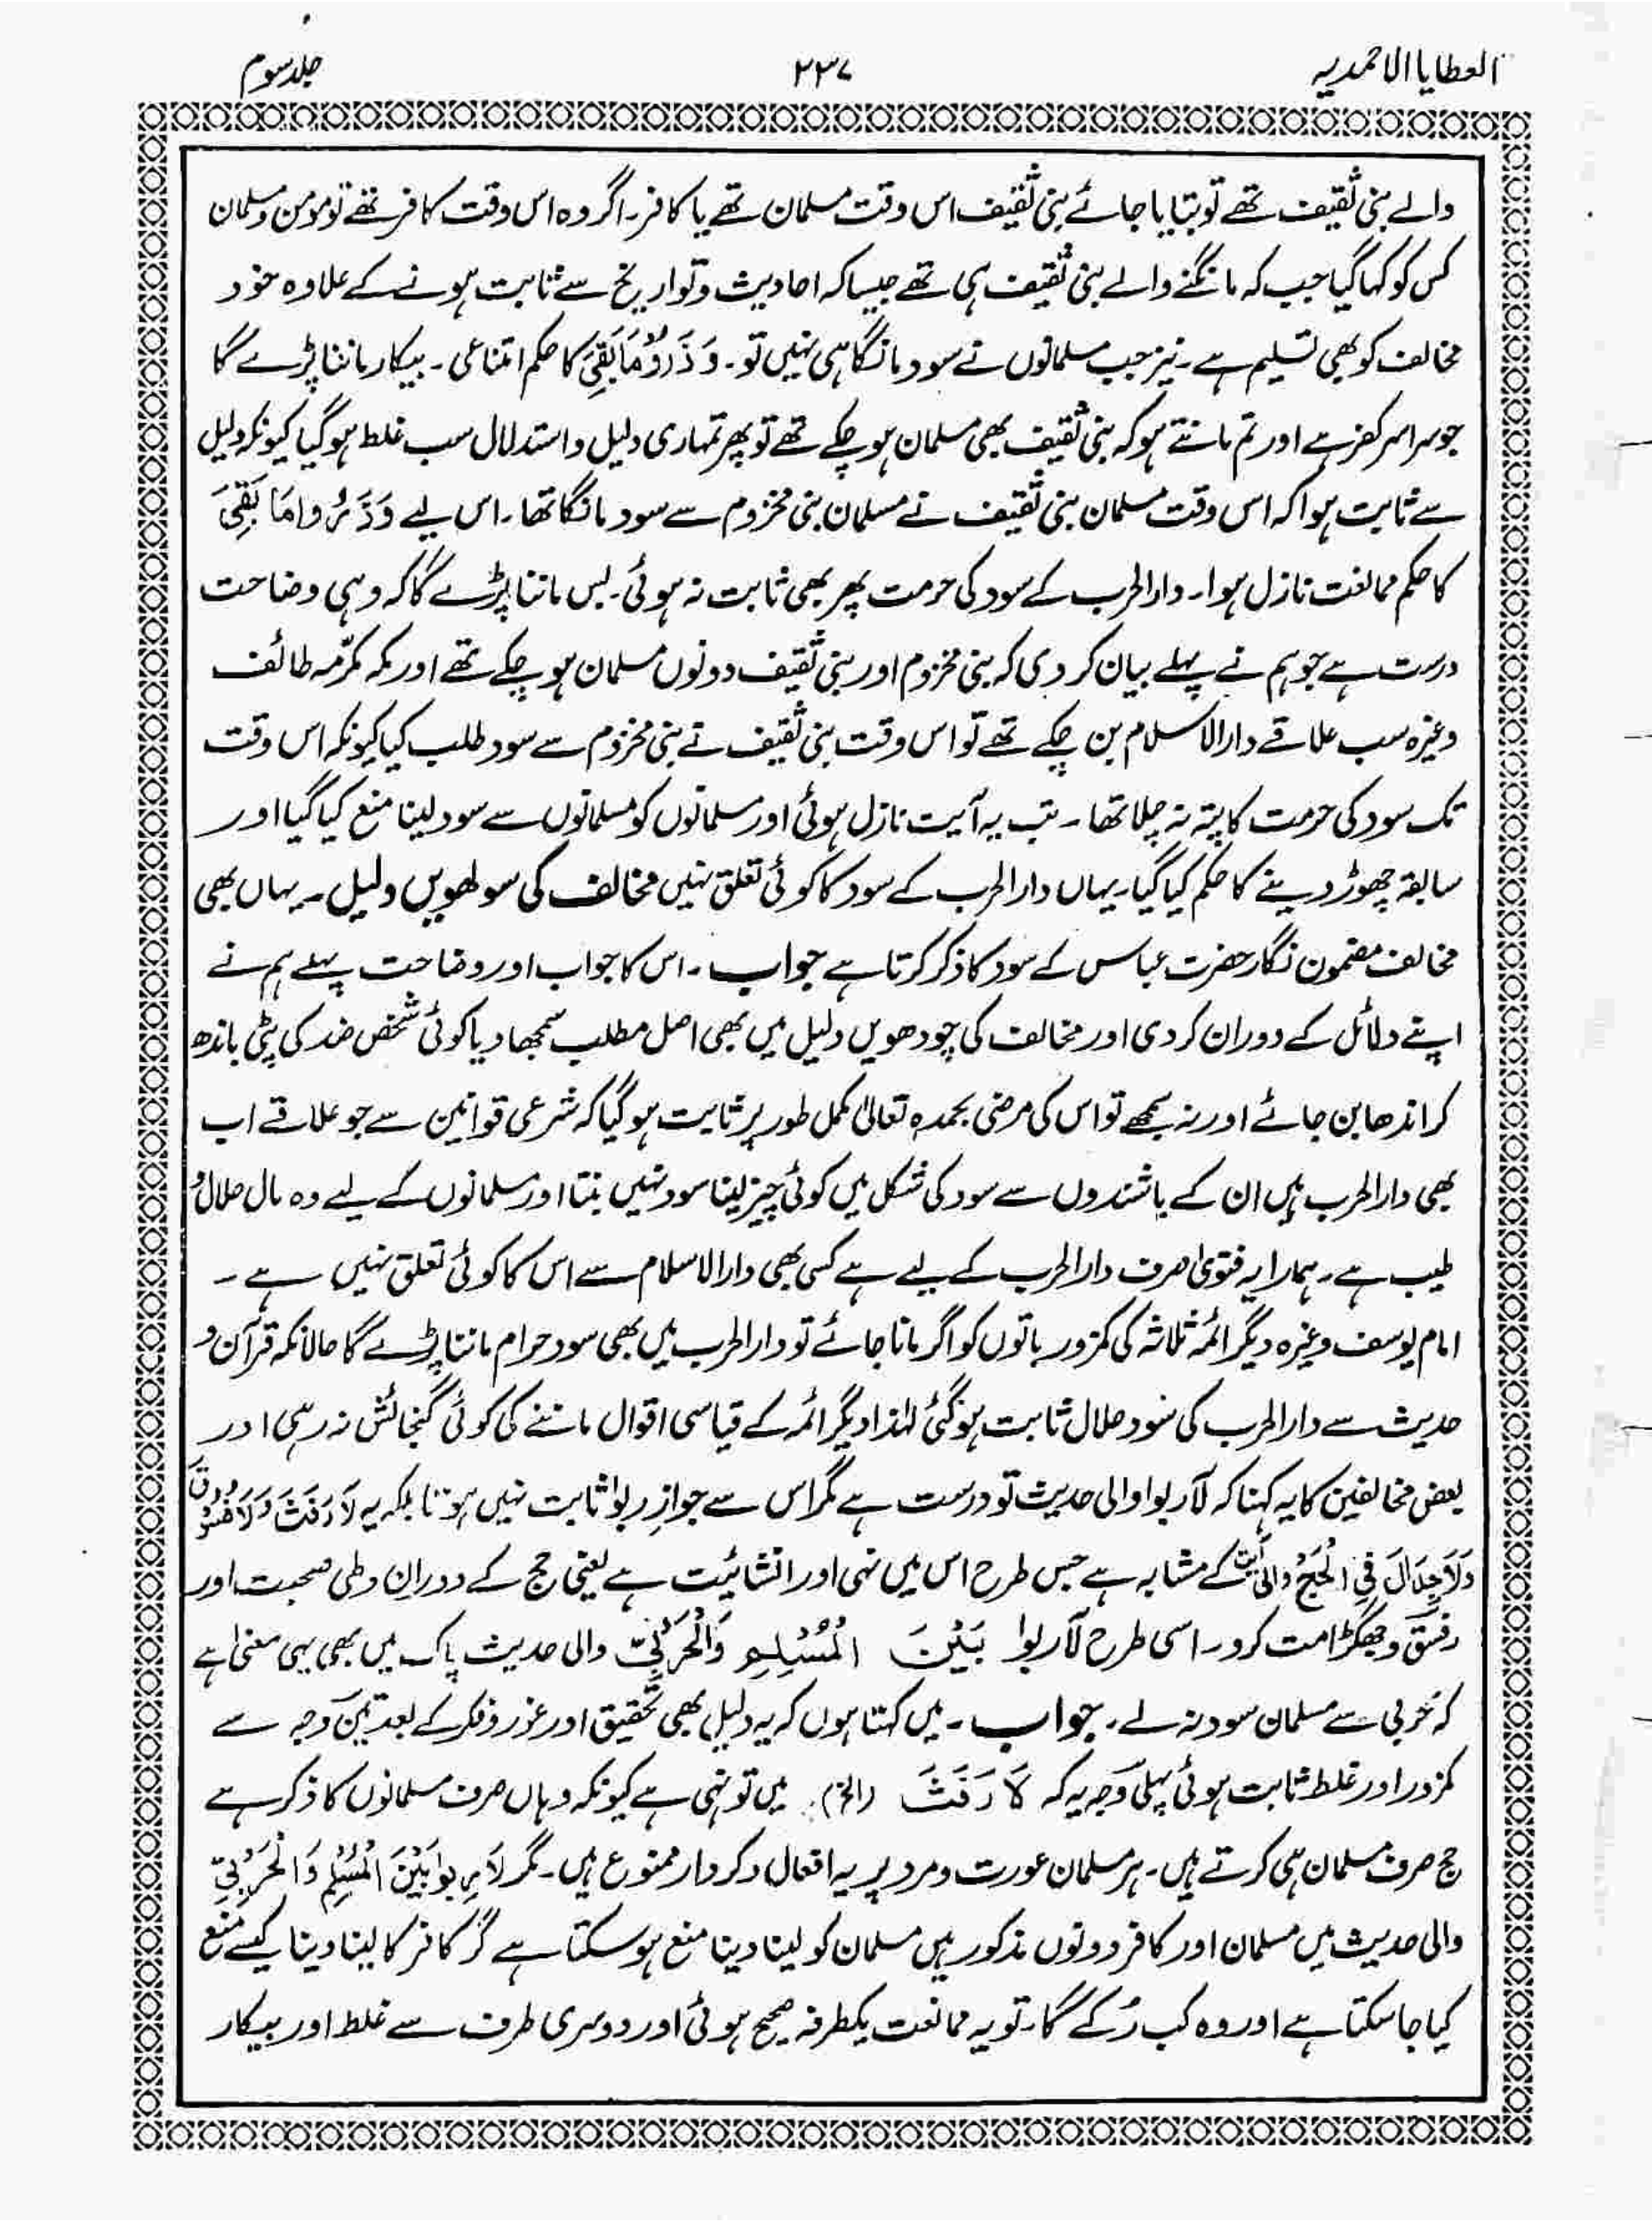 العطایا الاحمدیہ
۲۳۷
جلد سوم
والے بنی ثقیف تھے تو بتایا جائے بنی ثقیف اس وقت مسلمان تھے یا کافر۔ اگر وہ اس وقت کافر تھے تو مومن و مسلمان
کس کو کہا گیا جب کہ مانگنے والے بنی ثقیف ہی تھے جیسا کہ احادیث و تواریخ سے ثابت ہونے کے علاوہ خود
مخالف کو بھی تسلیم ہے۔ نیز جب مسلمانوں نے سود مانگا ہی نہیں تو۔ وَذَرُوْمَا بَقِیَ کا حکم امتناعی۔ بیکار ماننا پڑے گا
جو سراسر کفر ہے اور تم مانتے ہو کہ بنی ثقیف بھی مسلمان ہو چکے تھے تو پھر تمہاری دلیل و استدلال سب غلط ہو گیا کیونکہ دلیل
سے ثابت ہوا کہ اس وقت مسلمان بنی ثقیف نے مسلمان بنی مخزوم سے سود مانگا تھا۔ اس لیے وَذَرُوا مَا بَقِیَ
کا حکم ممالغت نازل ہوا۔ دارالحرب کے سود کی حرمت پھر بھی ثابت نہ ہوئی۔ بس ماننا پڑے گا کہ وہی وضاحت
درست ہے جو ہم نے پہلے بیان کر دی کہ بنی مخزوم اور بنی ثقیف دونوں مسلمان ہو چکے تھے اور مکہ مکرّمہ طائف
وغیرہ سب علاقے دارالاسلام بن چکے تھے تو اس وقت بنی ثقیف نے بنی مخزوم سے سود طلب کیا کیونکہ اس وقت
تک سود کی حرمت کا پتہ نہ چلا تھا۔ تب یہ آیت نازل ہوئی اور مسلمانوں کو مسلمانوں سے سود لینا منع کیا گیا اور
سابقہ چھوڑ دینے کا حکم کیا گیا۔ یہاں دارالحرب کے سود کا کوئی تعلق نہیں مخالف کی سولھویں دلیل۔ یہاں بھی
مخالف مضمون نگار حضرت عباس کے سود کا ذکر کرتا ہے جواب۔ اس کا جواب اور وضاحت پہلے ہم نے
اپنے دلائل کے دوران کر دی اور مخالف کی چودھویں دلیل میں بھی اصل مطلب سمجھا دیا کوئی شخص ضد کی پٹی باندھ
کر اندھا بن جائے اور نہ سمجھے تو اس کی مرضی بحمدہ تعالیٰ مکمل طور پر ثابت ہو گیا کہ شرعی قوانین سے جو علاقے اب
بھی دارالحرب ہیں ان کے باشندوں سے سود کی شکل میں کوئی چیز لینا سود نہیں بنتا اور مسلمانوں کے لیے وہ مال حلال و
طیب ہے۔ ہمارا یہ فتویٰ صرف دارالحرب کے لیے ہے کسی بھی دارالاسلام سے اس کا کوئی تعلق نہیں ہے۔
امام یوسف وغیرہ دیگر ائمہ ثلاثہ کی کمزور باتوں کو اگر مانا جائے تو دارالحرب میں بھی سود حرام ماننا پڑے گا حالانکہ قرآن و
حدیث سے دارالحرب کی سود حلال ثابت ہو گئی لہٰذا دیگر ائمہ کے قیاسی اقوال ماننے کی کوئی گنجائش نہ رہی اور
بعض مخالفین کا یہ کہنا کہ لَآ ربوا والی حدیث تو درست ہے مگر اس سے جوازِ ربوا ثابت نہیں ہوتا بلکہ یہ لَا رَفَثَ وَلَا فُسُوْقَ
وَلَاجِدَالَ فِی الْحَجِّ والی آیت کے مشابہ ہے جس طرح اس میں نہی اور انشائیت ہے یعنی حج کے دورانِ وطی صحبت اور
رفسق و جھگڑا مت کرو۔ اسی طرح لَآ ربوا بَیْنَ الْمُسْلِمِ وَالْحَرْبِیِّ والی حدیث پاک میں بھی یہی معنیٰ ہے
کہ حَربی سے مسلمان سود نہ لے۔ جواب۔ میں کہتا ہوں کہ یہ دلیل بھی تحقیق اور غور و فکر کے بعد تین وجہ سے
کمزور اور غلط ثابت ہوئی پہلی وجہ یہ کہ لَا رَفَثَ (الخ) میں تو نہی ہے کیونکہ وہاں صرف مسلمانوں کا ذکر ہے
حج صرف مسلمان ہی کرتے ہیں۔ ہر مسلمان عورت و مرد پر یہ افعال و کردار ممنوع ہیں۔ مگر لَا رِبوا بَیْنَ الْمُسْلِمِ وَالْحَرْبِیِّ
والی حدیث میں مسلمان اور کافر دونوں مذکور ہیں مسلمان کو لینا دینا منع ہو سکتا ہے مگر کافر کا لینا دینا کیسے منع
کیا جا سکتا ہے اور وہ کب رُکے گا۔ تو یہ ممانعت یکطرفہ صحیح ہوئی اور دوسری طرف سے غلط اور بیکار